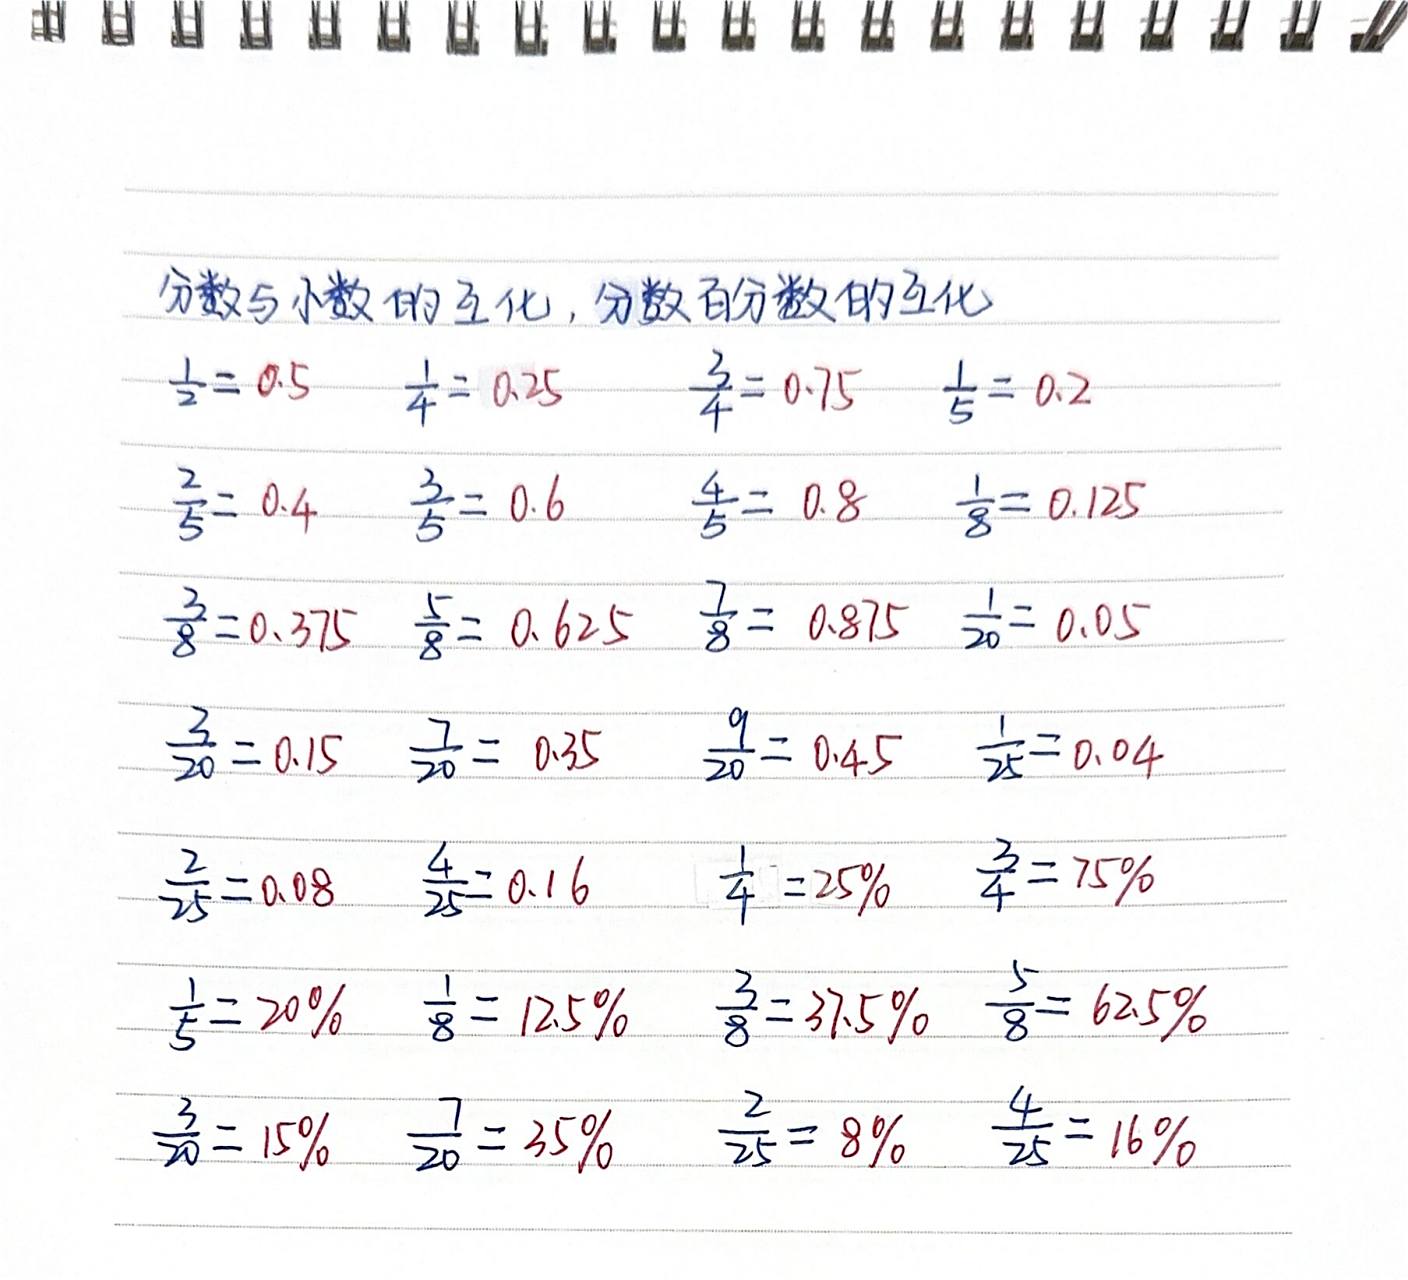 分数与小数的互化，分数百分数的互化
1/2 = 0.5 1/4 = 0.25 3/4 = 0.75 1/5 = 0.2
2/5 = 0.4 3/5 = 0.6 4/5 = 0.8 1/8 = 0.125
3/8 = 0.375 5/8 = 0.625 7/8 = 0.875 1/20 = 0.05
3/20 = 0.15 7/20 = 0.35 9/20 = 0.45 1/25 = 0.04
2/25 = 0.08 4/25 = 0.16 1/4 = 25% 3/4 = 75%
1/5 = 20% 1/8 = 12.5% 3/8 = 37.5% 5/8 = 62.5%
3/20 = 15% 7/20 = 35% 2/25 = 8% 4/25 = 16%